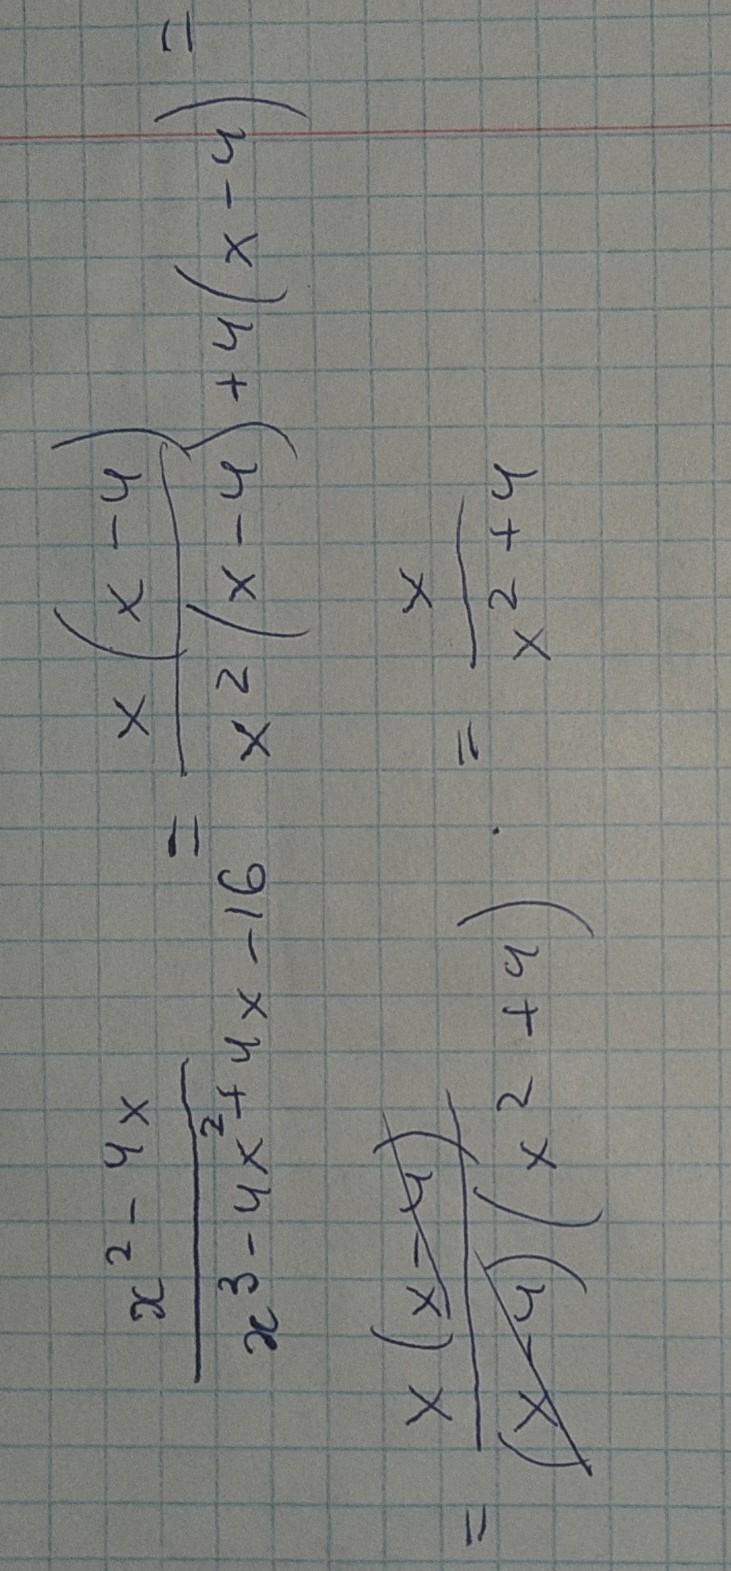 x² - 4x / x³ - 4x² + 4x - 16 = x(x - 4) / x²(x - 4) + 4(x - 4) =
= x(x - 4) / (x - 4)(x² + 4) = x / x² + 4